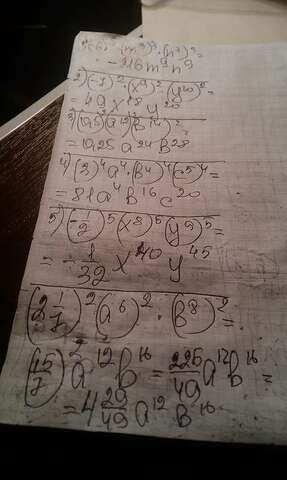 1) (-6)³·(m³)³·(n³)³=
-216m⁹n⁹
2) (-7)²·(x⁹)²·(y¹⁰)²=
=49x¹⁸y²⁰
3) (0,5)²(a¹²)²(b¹⁴)²=
=10,25a²⁴b²⁸
4) (3)⁴a⁴·(b⁴)⁴(c⁵)⁴=
=81a⁴b¹⁶c²⁰
5) (-1/2)⁵(x⁸)⁵(y⁹)⁵=
=-1/32x⁴⁰y⁴⁵
(2 1/7)²(a⁶)²·(b⁸)²=
(15/7)²a¹²b¹⁶=225/49a¹²b¹⁶=
=4 29/49a¹²b¹⁶